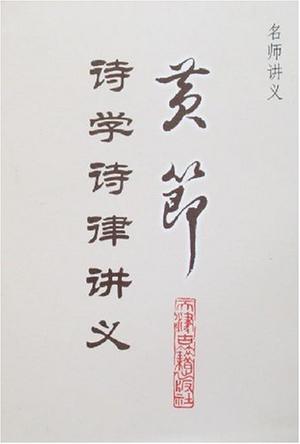 名师讲义
黄節
诗学诗律讲义
天津古籍出版社